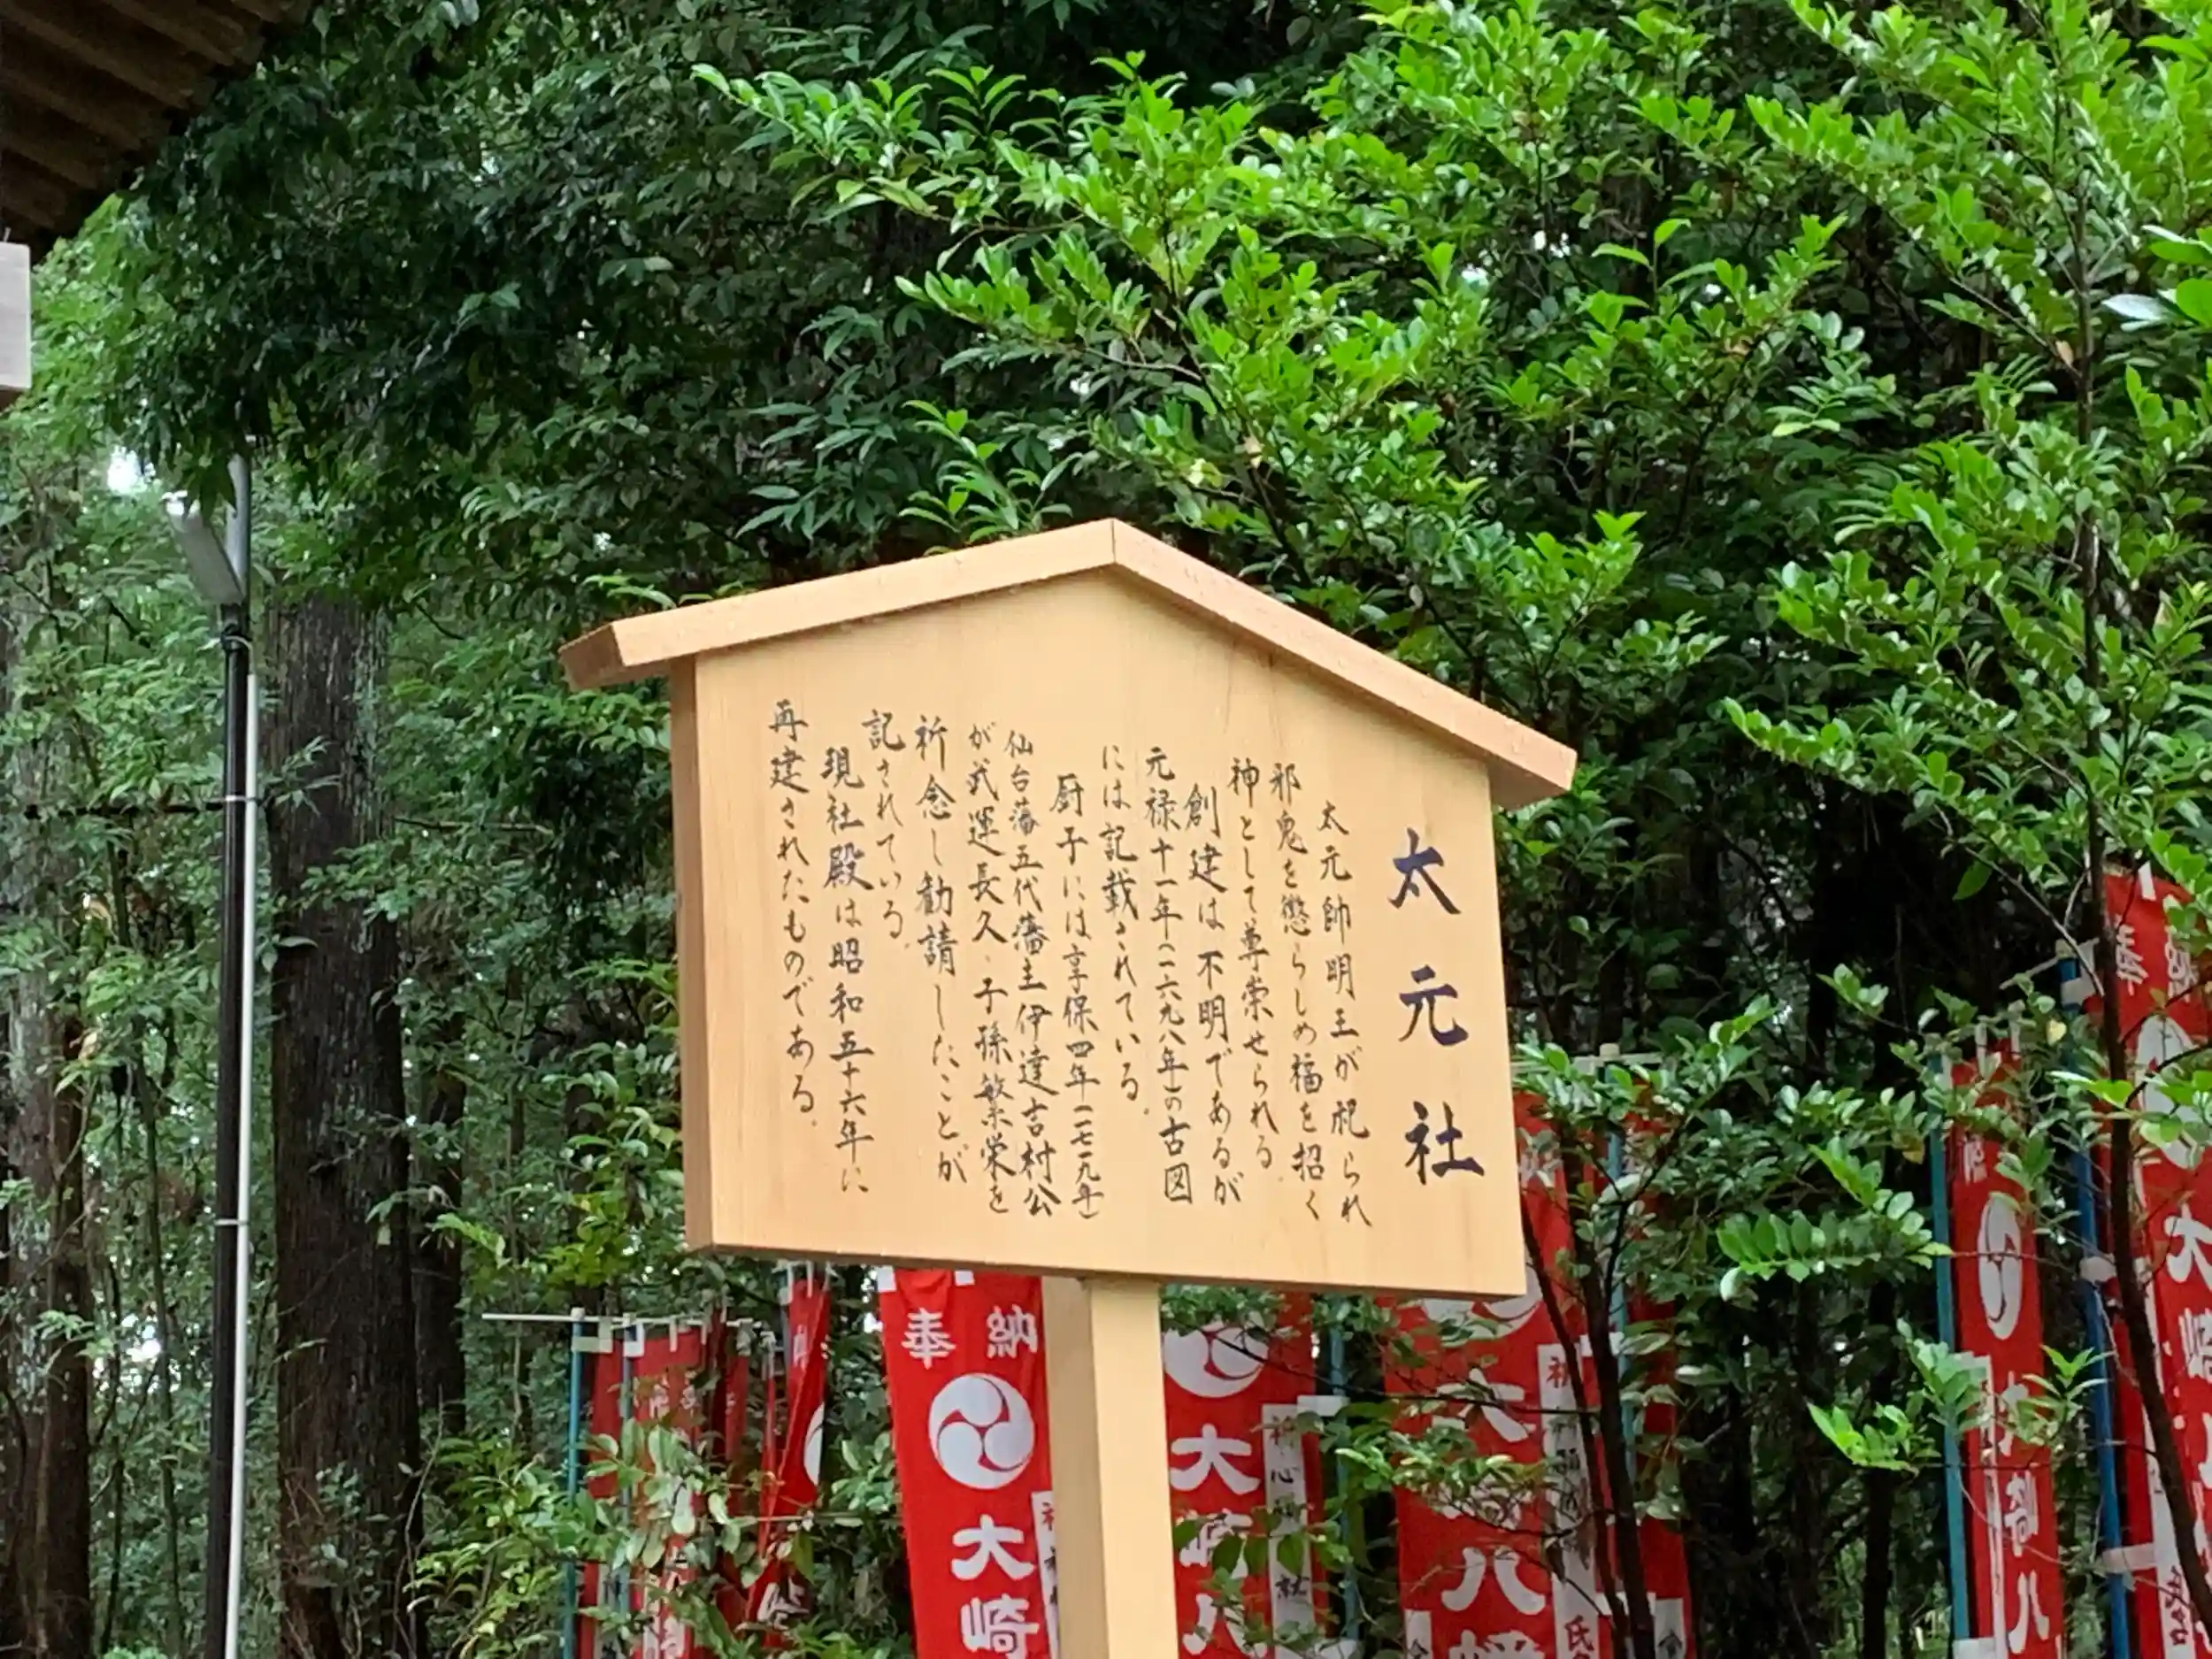 太元社
太元帥明王が祀られ
邪鬼を懲らしめ福を招く
神として尊崇せられる。
創建は不明であるが
元禄十一年(一六九八年)の古図
には記載されている。
厨子には享保四年(一七一九年)
仙台藩五代藩主伊達吉村公
が武運長久、子孫繁栄を
祈念し勧請したことが
記されている。
現社殿は昭和五十六年に
再建されたものである。
奉納
大崎
大崎八
大崎八幡
大崎八
奉
大崎